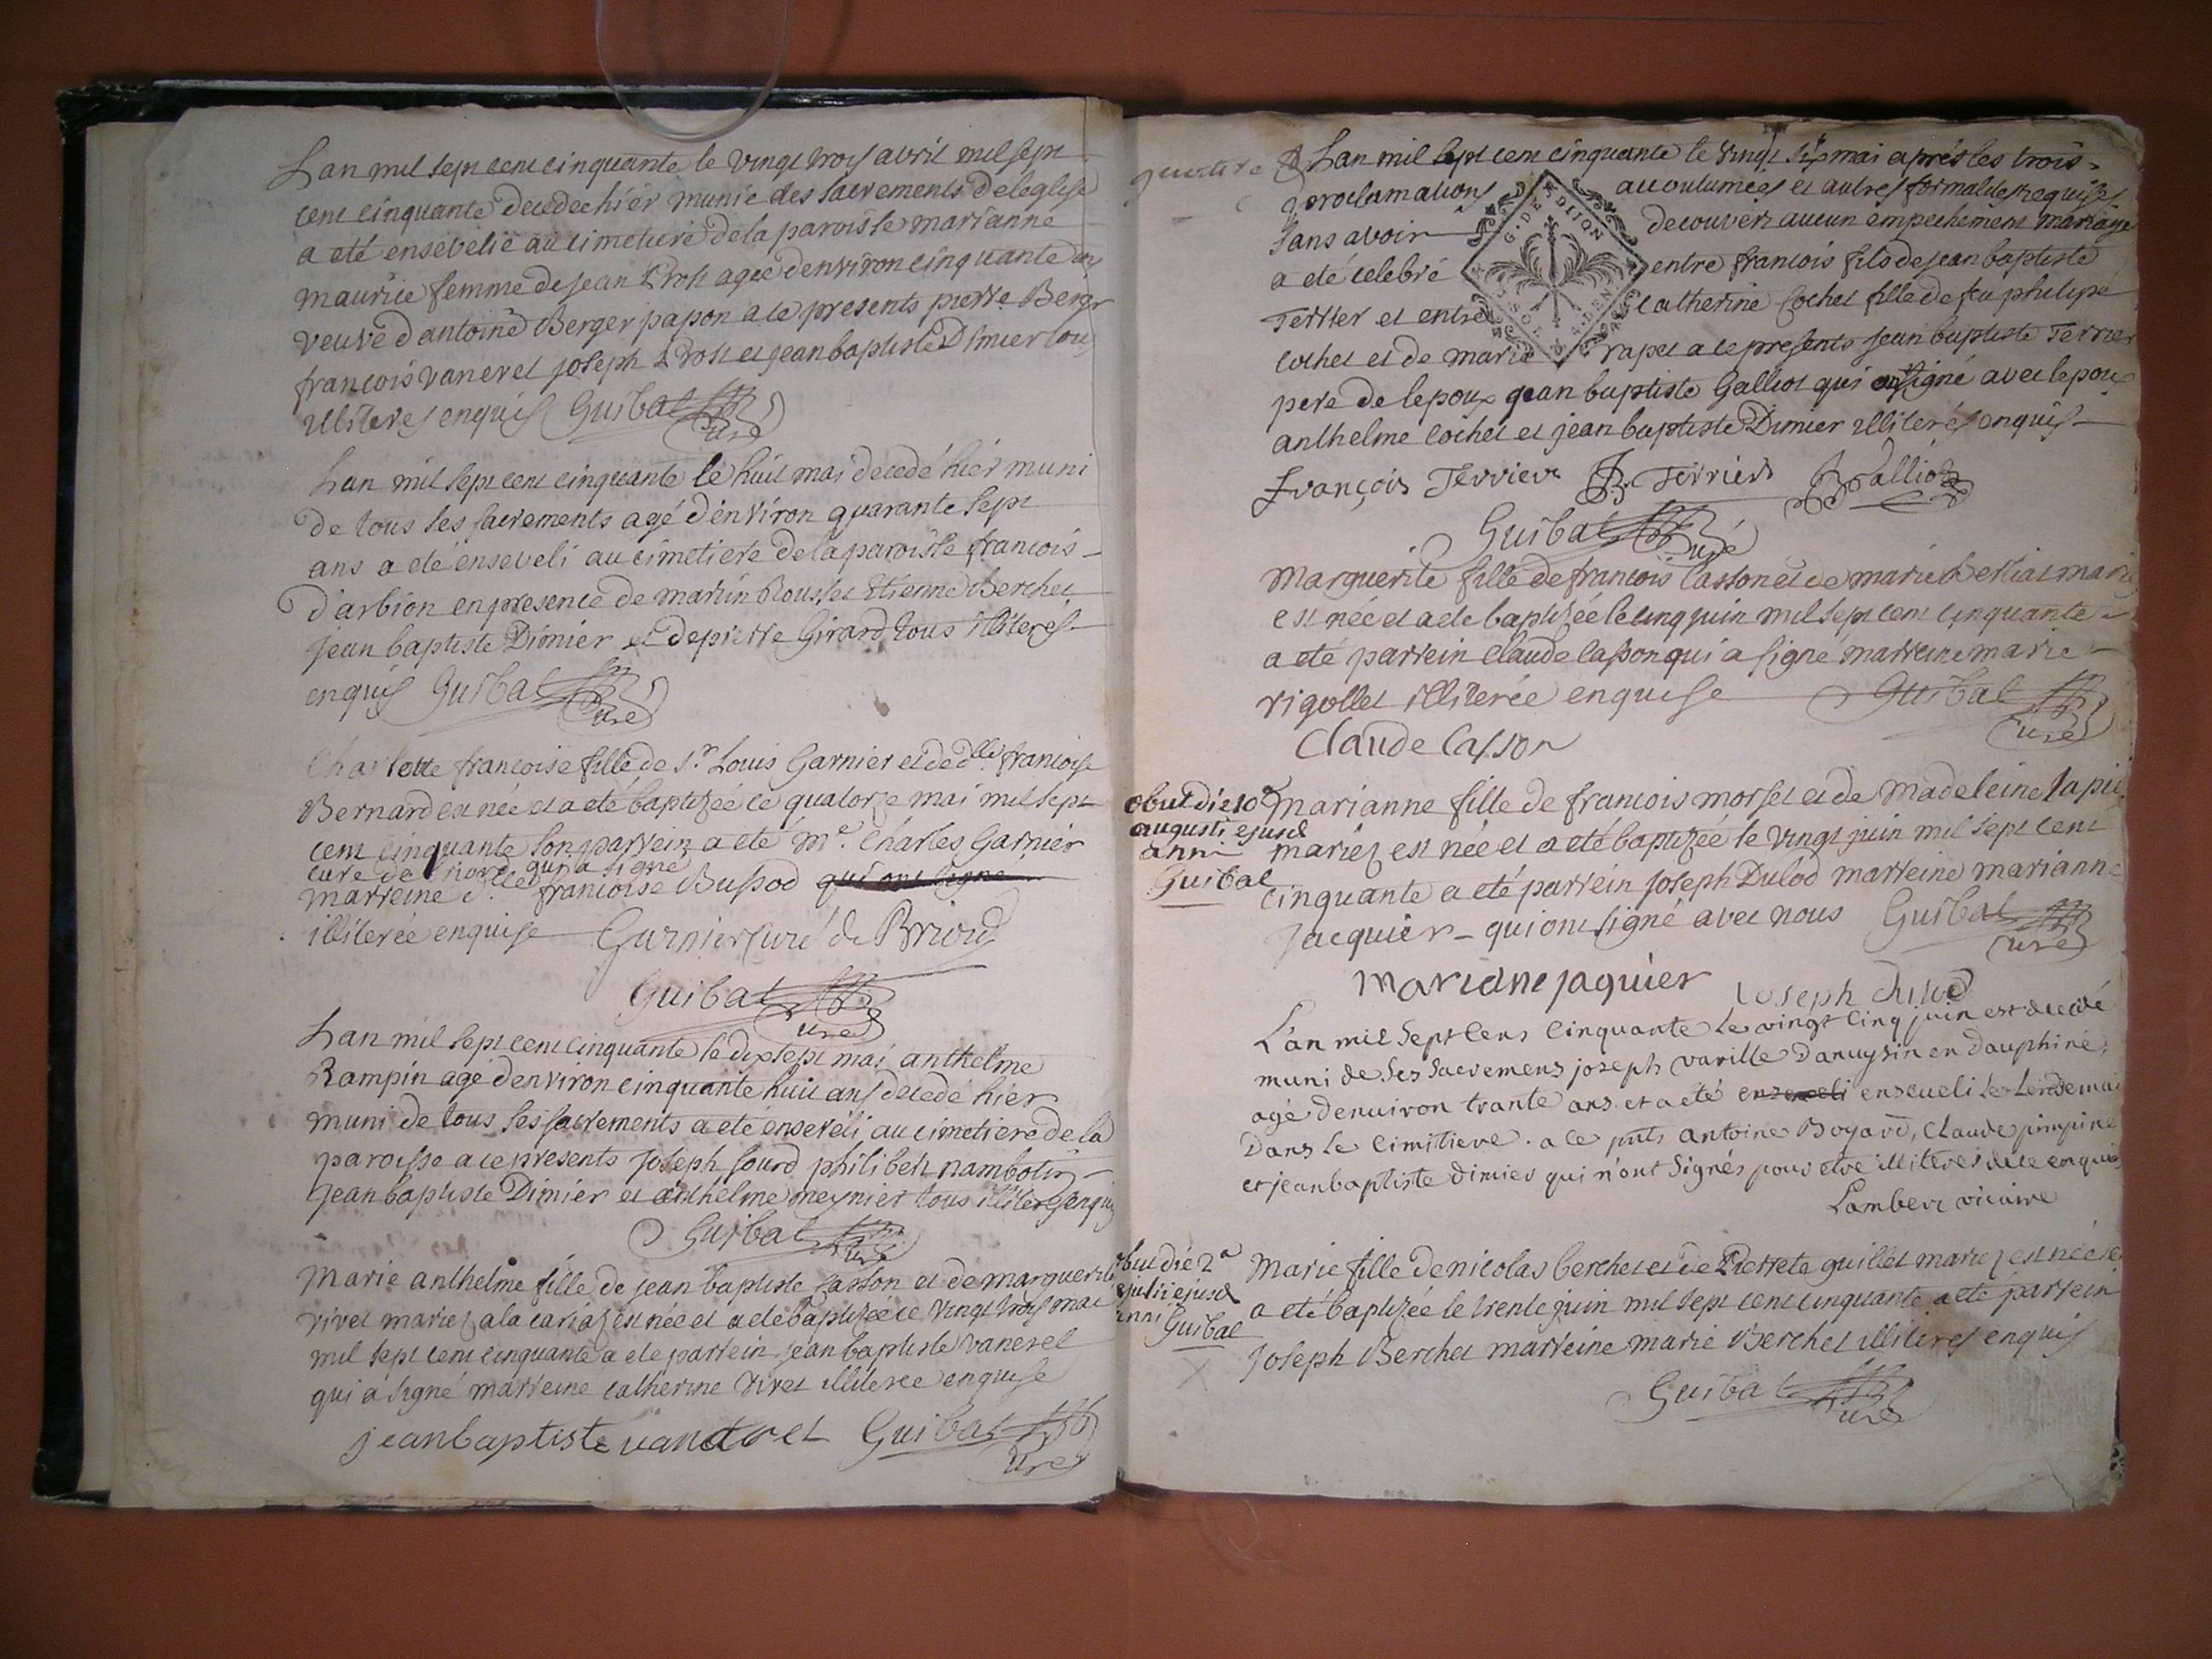 Lan mil sept cent cinquante le vingt trois avril mil sept
cent cinquante decedee hiér munie des sacrements de leglise
a eté ensevelie au cimetiere de la paroisse marianne
maurice femme de jean Drost agee denviron cinquante ans
veuve d'antoine Berger papon a ce presents pierre Berger
francois vaneret joseph Drost et jean baptiste Dimier tous
illiteres enquis Guibat curé
Lan mil sept cent cinquante le huit mai decedé hiér muni
de tous ses sacrements agé d'environ quarante sept
ans a eté enseveli au cimetiere de la paroisse francois
d'arbion en presence de martin Rousset Etienne Berchet
jean baptiste Dimier et de pierre Girard tous illiteres
enquis Guibat curé
Charlotte francoise fille de Sr. Louis Garnier et de dlle francoise
Bernard est née et a eté baptizée le quatorze mai mil sept
cent cinquante son parrein a eté Me. Charles Garnier
curé de Briord qui a signé
marreine dlle francoise Bussod qui ont signe
illiterée enquise Garnier curé de Briord
Guibat curé
Lan mil sept cent cinquante le dix sept mai anthelme
Rampin agé d'environ cinquante huit ans decedé hiér
muni de tous ses sacrements a eté enseveli au cimetiere de la
paroisse a ce presents Joseph Sourd philibert nambotin
jean baptiste Dimier et anthelme meynier tous illiteres enquis
Guibat curé
Marie anthelme fille de jean baptiste Casson et de marguerite
vivet mariez a la cariaz est née et a eté baptizée le vingt trois mai
mil sept cent cinquante a eté parrein jean baptiste vaneret
qui a signé marreine catherine vivet illiteree enquise
jean baptiste vanaret Guibat curé
Lan mil sept cent cinquante le vingt six mai aprés les trois
proclamations accoutumées et autres formalites requises
sans avoir decouvert aucun empechement mariage
a eté celebré entre francois fils de jean baptiste
Terrier et entre catherine Cochet fille de feu philipe
G. DE DIJON
cochet et de marie rapet a ce presents jean baptiste Terrier
pere de lepoux jean baptiste Galliot qui ont signé avec lepoux
anthelme cochet et jean baptiste Dimier illiterés enquis
François Terrier JB. Terrier JB Galliot
Guibat curé
Marguerite fille de francois Casson et de marie mariez
est née et a eté baptizée le cinq juin mil sept cent cinquante
a eté parrein claude Casson qui a signé marreine marie
rigollet illiterée enquise Guibat curé
Claude Casson
obiit die 10a
augusti ejusd
anni
Guibat
Marianne fille de francois morset et de madeleine
mariez est née et a eté baptizée le vingt juin mil sept cent
cinquante a eté parrein joseph Dulod marreine marianne
jacquier qui ont signé avec nous Guibat curé
mariane jaquier Joseph
L'an mil sept cens cinquante le vingt cinq juin est decédé
muni de ses sacremens joseph varille danuysin en dauphiné,
agé denuiron trante ans et a eté enseveli enseueli le lendemain
dans le cimitiere. a ce pnts antoine Bogard, claude pimpine
et jeanbaptiste dimier qui n'ont signés pour etre illiteres de ce enquis
Lambert vicaire
obiit die 2a
julii ejusd
anni
Guibat
Marie fille de nicolas berchet et de Pierrete guillet mariez est née et
a eté baptizée le trente juin mil sept cent cinquante a eté parrein
Joseph Berchet marreine marie Berchet illiteres enquis
Guibat curé